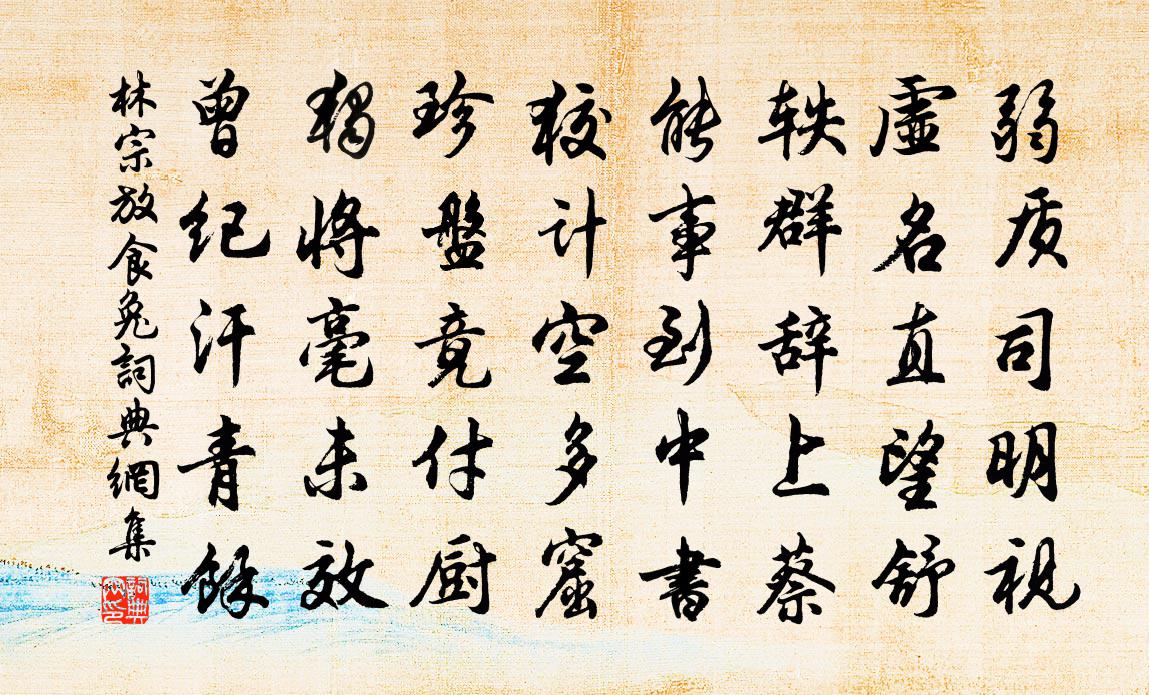 弱质司明视
虚名直望舒
轶群辞上蔡
能事到中书
狡计空多窟
珍盘竟付厨
独将毫未效
曾纪汗青馀
林宗放食兔詞典網集